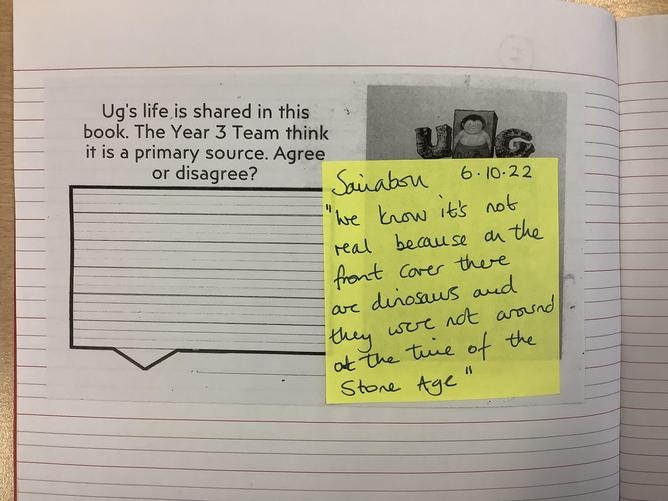 Ug's life is shared in this
book. The Year 3 Team think
it is a primary source. Agree
or disagree?
UG
6.10.22
"We know it's not
real because on the
front cover there
are dinosaurs and
they were not around
at the time of the
Stone Age"